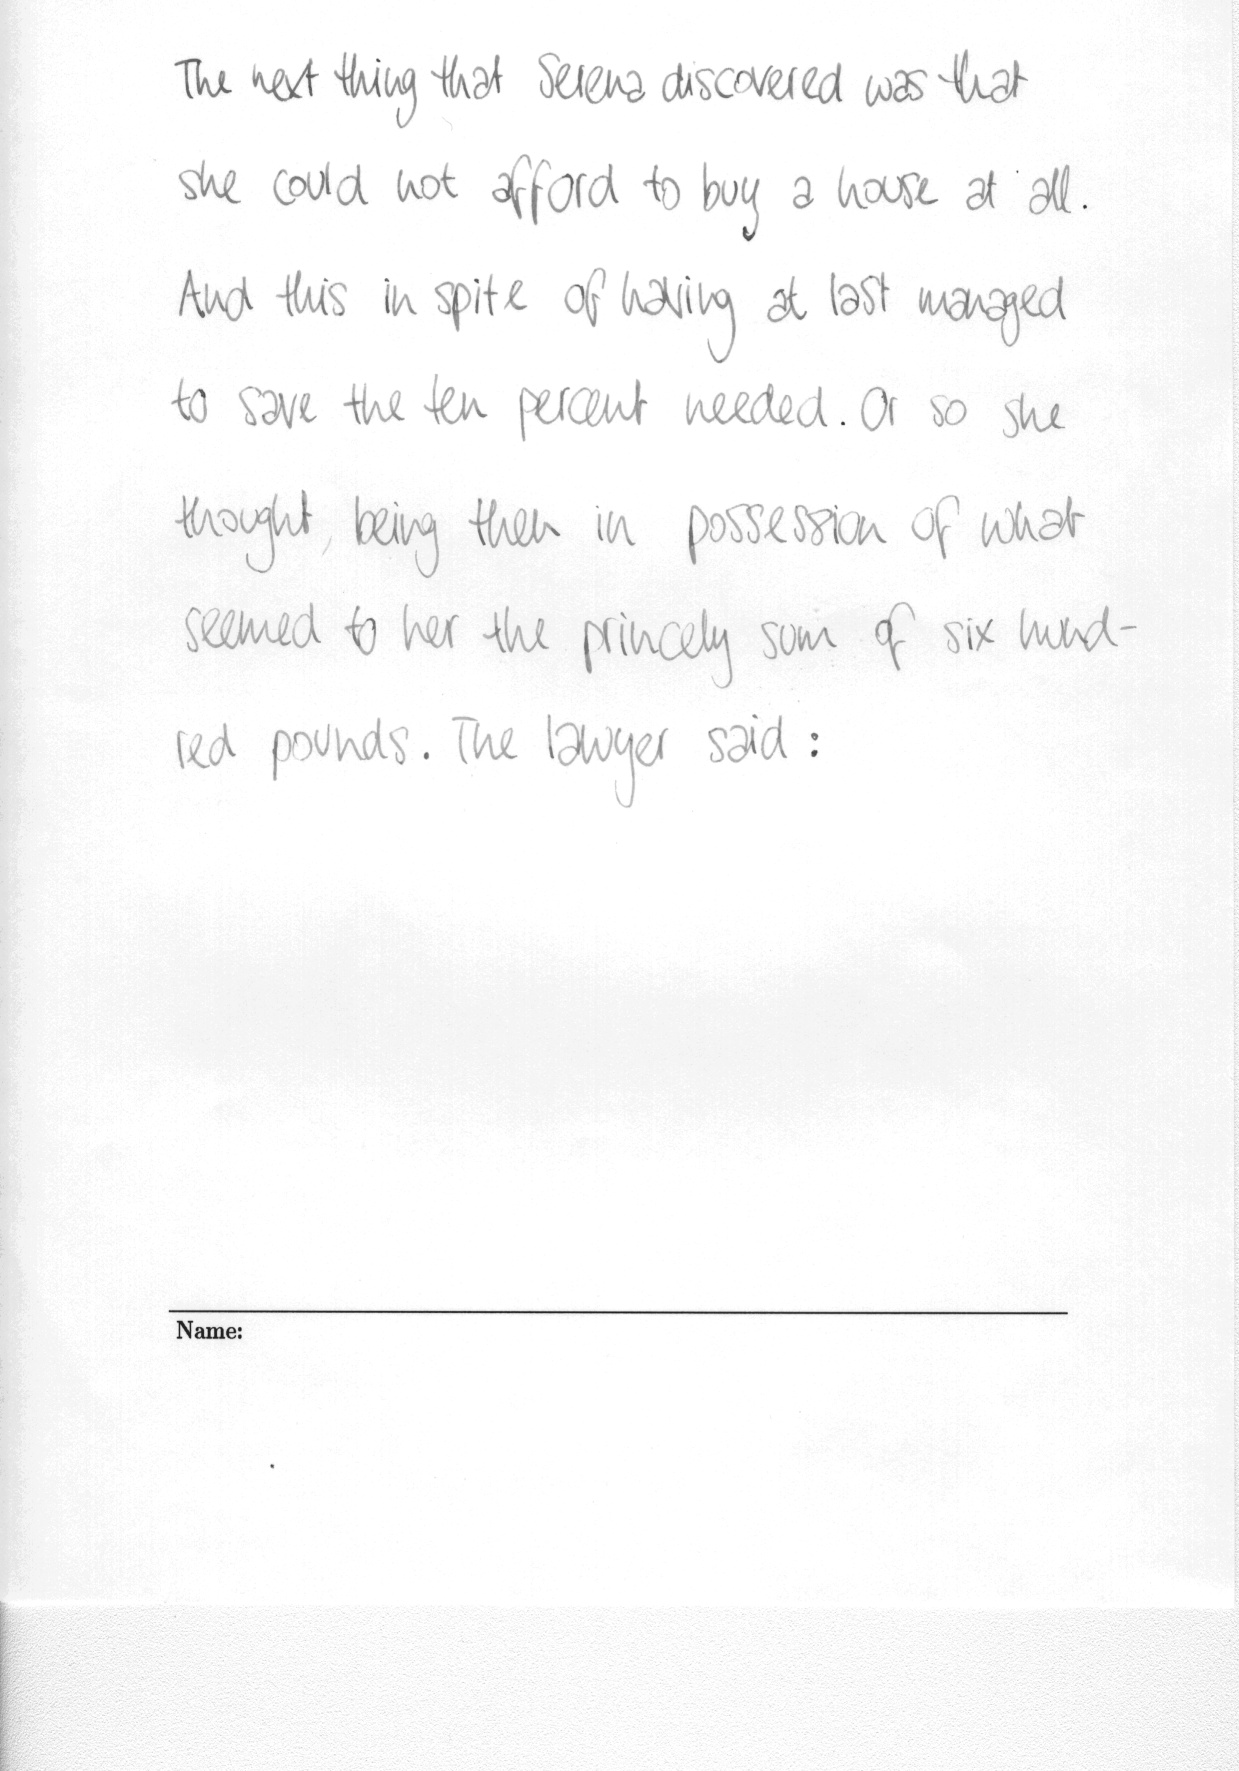 The next thing that Serena discovered was that
she could not afford to buy a house at all.
And this in spite of having at last managed
to save the ten percent needed. Or so she
thought, being then in possession of what
seemed to her the princely sum of six hund-
red pounds. The lawyer said :
Name: